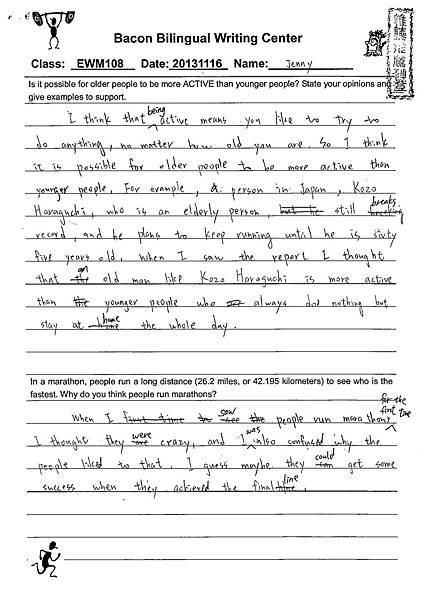 Bacon Bilingual Writing Center
Class: EWM108 Date: 20131116 Name: Jenny
Is it possible for older people to be more ACTIVE than younger people? State your opinions and
give examples to support.
I think that being active means you like to try to
do anything, no matter how old you are. So I think
it is possible for older people to be more active than
younger people. For example, a person in Japan, Kozo
Haraguchi, who is an elderly person, but he still breaks
record, and he plans to keep running until he is sixty
five years old. When I saw the report I thought
that an old man like Kozo Haraguchi is more active
than the younger people who always do nothing but
stay at home the whole day.
In a marathon, people run a long distance (26.2 miles, or 42.195 kilometers) to see who is the
fastest. Why do you think people run marathons?
When I first time to saw see the people run marathon for the first time
I thought they were crazy, and I was also confused why the
people liked to that. I guess maybe they could get some
success when they achieved the final line.